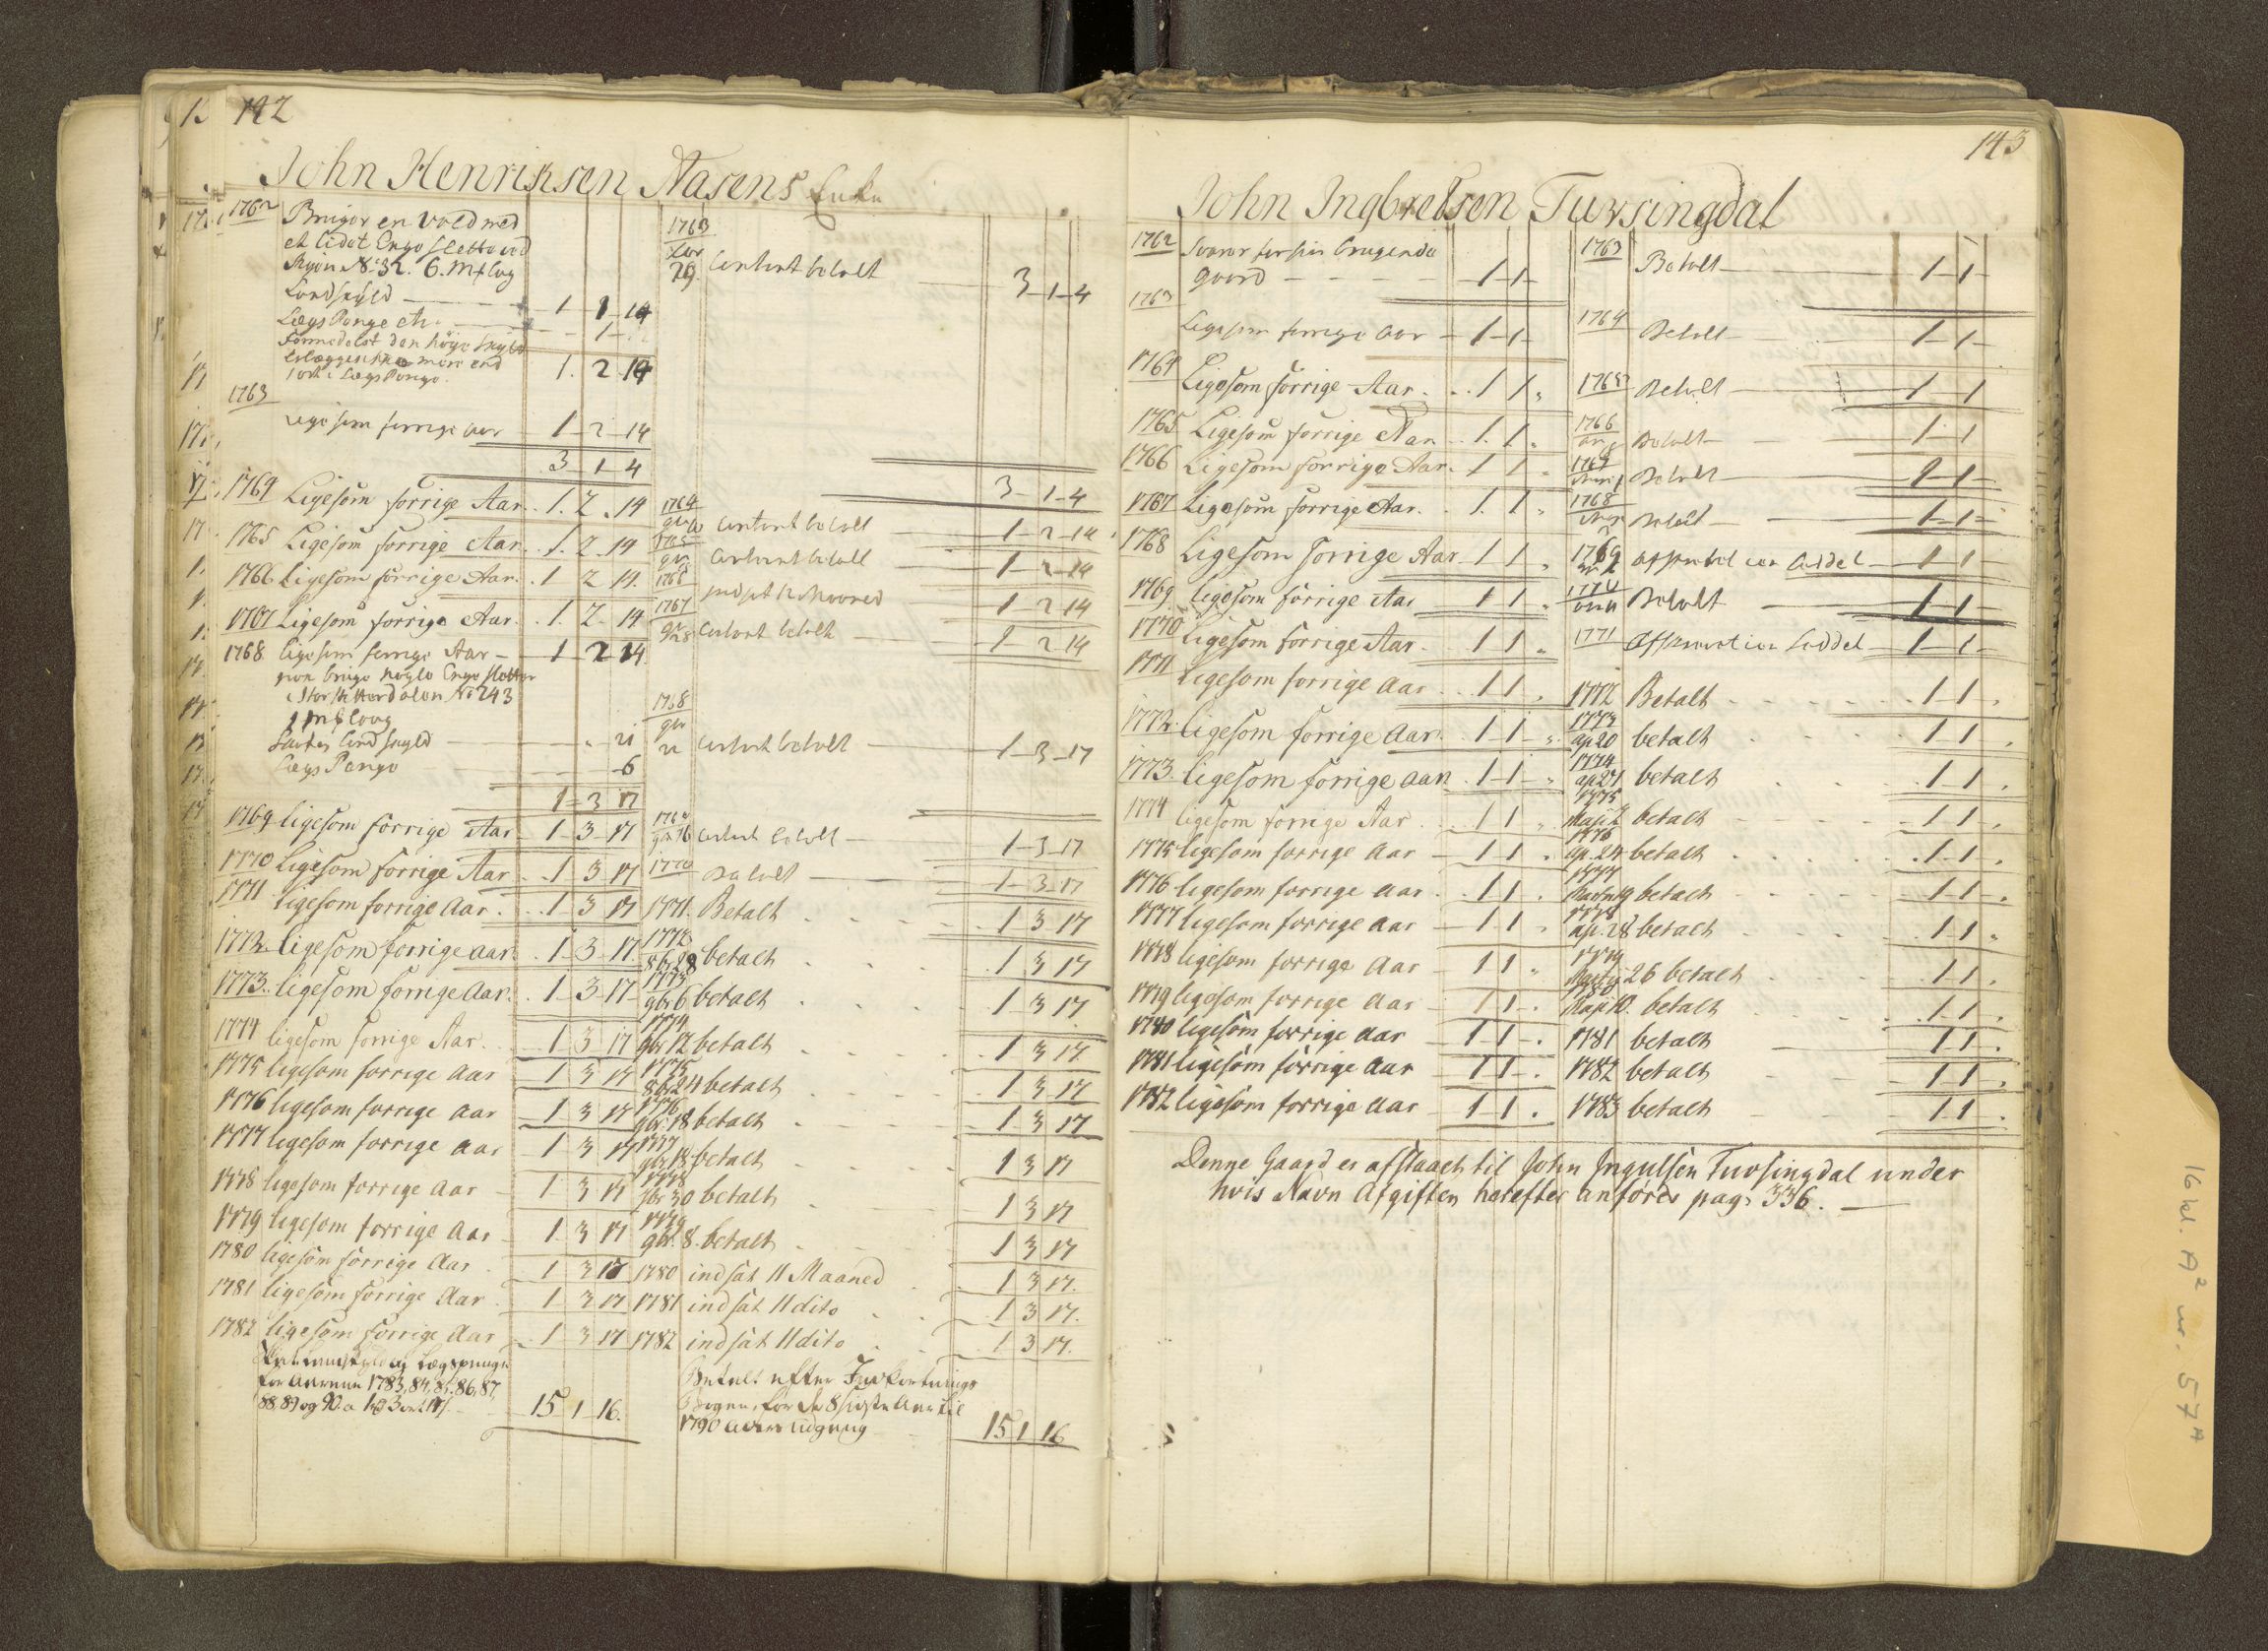 142
John Henriksen Aasens Enke
1762 Bruger en Vold med
et lidet Enge slette ved
Skyön No 32. 6. mf Laug
Landskyld 1 1 14
Lægs Penge etc. 1
Formedelst den høye skyld
erlægges ikke mere end
1 ort i Lægs Penge. 1. 2 14
1763
Lige som forrige Aar 1 2 14
3 1 4
1764 Ligesom forrige Aar 1. 2. 14
1765 Ligesom forrige Aar 1. 2 14
1766 Ligesom forrige Aar 1 2 14.
1767 Ligesom forrige Aar 1. 2 14
1768 Ligesom forrige Aar 1 2 14
nogle Enge sletter
No 243
1 mf Laug
Land skyld
Lægs Penge 6
1 3 17
1769 ligesom forrige Aar 1 3 17
1770 Ligesom forrige Aar 1 3 17
1771 ligesom forrige Aar 1 3 17
1772 ligesom forrige Aar 1 3 17
1773 ligesom forrige Aar 1 3 17
1774 ligesom forrige Aar 1 3 17
1775 ligesom forrige Aar 1 3 17
1776 ligesom forrige Aar 1 3 17
1777 ligesom forrige Aar 1 3 17
1778 ligesom forrige Aar 1 3 17
1779 ligesom forrige Aar 1 3 17
1780 ligesom forrige Aar 1 3 17
1781 ligesom forrige Aar 1 3 17
1782 ligesom forrige Aar 1 3 17
Landskyld og Lægspenge
for Aarene 1783, 84, 85, 86, 87,
88, 89 og 90. a 1 3 ort 17 15 1 16.
1763
29 Contant betalt 3 1 4
3 1 4
1764
Contant betalt 1 2 14
1765
Contant betalt 1 2 14
1766
indsat 12 Maaned 1 2 14
1767
9br 8 Contant betalt 1 2 14
1768
9br
Contant betalt 1 3 17
1769
16 Contant betalt 1 3 17
1770 Betalt 1 3 17
1771. Betalt 1 3 17
1772
8br 28 betalt 1 3 17
1773
9br 6 betalt 1 3 17
1774
9br 12 betalt 1 3 17
1775
8br 24 betalt 1 3 17
1776
9br 18 betalt 1 3 17
1777
9br 13 betalt 1 3 17
1778
30 betalt 1 3 17
1779
9br. 8. betalt 1 3 17
1780 indsat 11 Maaned 1 3 17.
1781 indsat 11 dito 1 3 17.
1782 indsat 11 dito 1 3 17.
Betalt efter
Bogen, for de 8 sidste Aar til
1790 Aars udgang 15 1 16
143
John Ingbretsen Tursingdal
1762 Svarer for sin brugende
Gaard 1 1
1763
Ligesom forrige Aar 1 1
1764
Ligesom forrige Aar 1 1
1765 Ligesom forrige Aar 1. 1
1766 Ligesom forrige Aar 1 1
1767 Ligesom forrige Aar. 1. 1
1768 Ligesom forrige Aar 1 1
1769 ligesom forrige Aar 1 1
1770 Ligesom forrige Aar 1 1
1771 Ligesom forrige Aar 1 1
1772 ligesom forrige Aar 1 1
1773 ligesom forrige Aar 1 1
1774 ligesom forrige Aar 1 1
1775 ligesom forrige Aar 1 1
1776 ligesom forrige Aar 1 1
1777 ligesom forrige Aar 1 1
1778 ligesom forrige Aar 1 1
1779 ligesom forrige Aar 1 1
1780 ligesom forrige Aar 1 1
1781 ligesom forrige Aar 1 1
1782 ligesom forrige Aar 1 1
1763 Betalt 1 1
1764 Betalt 1 1
1765 Betalt 1 1
1766 Betalt 1 1
1767 Betalt 1 1
1768 Betalt 1 1
1769 Afskrevet 1 1
Betalt 1 1
1771 Afskrevet 1 1
1772 Betalt 1 1
1773
ap 20 betalt 1 1
1774
ap 27 betalt 1 1
1775
Maji betalt 1 1
1776
ap. 24 betalt 1 1
1777
19 betalt 1 1
1778
ap. 28 betalt 1 1
1779
Martij 26 betalt 1 1
1780
Maji 10. betalt 1 1
1781 betalt 1 1
1782 betalt 1 1
1783 betalt 1 1
Denne Gaard er afstaaet til John Ingulsen Tursingdal under
hvis Navn Afgiften herefter anføres pag. 336.
16 kl. A² nr. 57 A